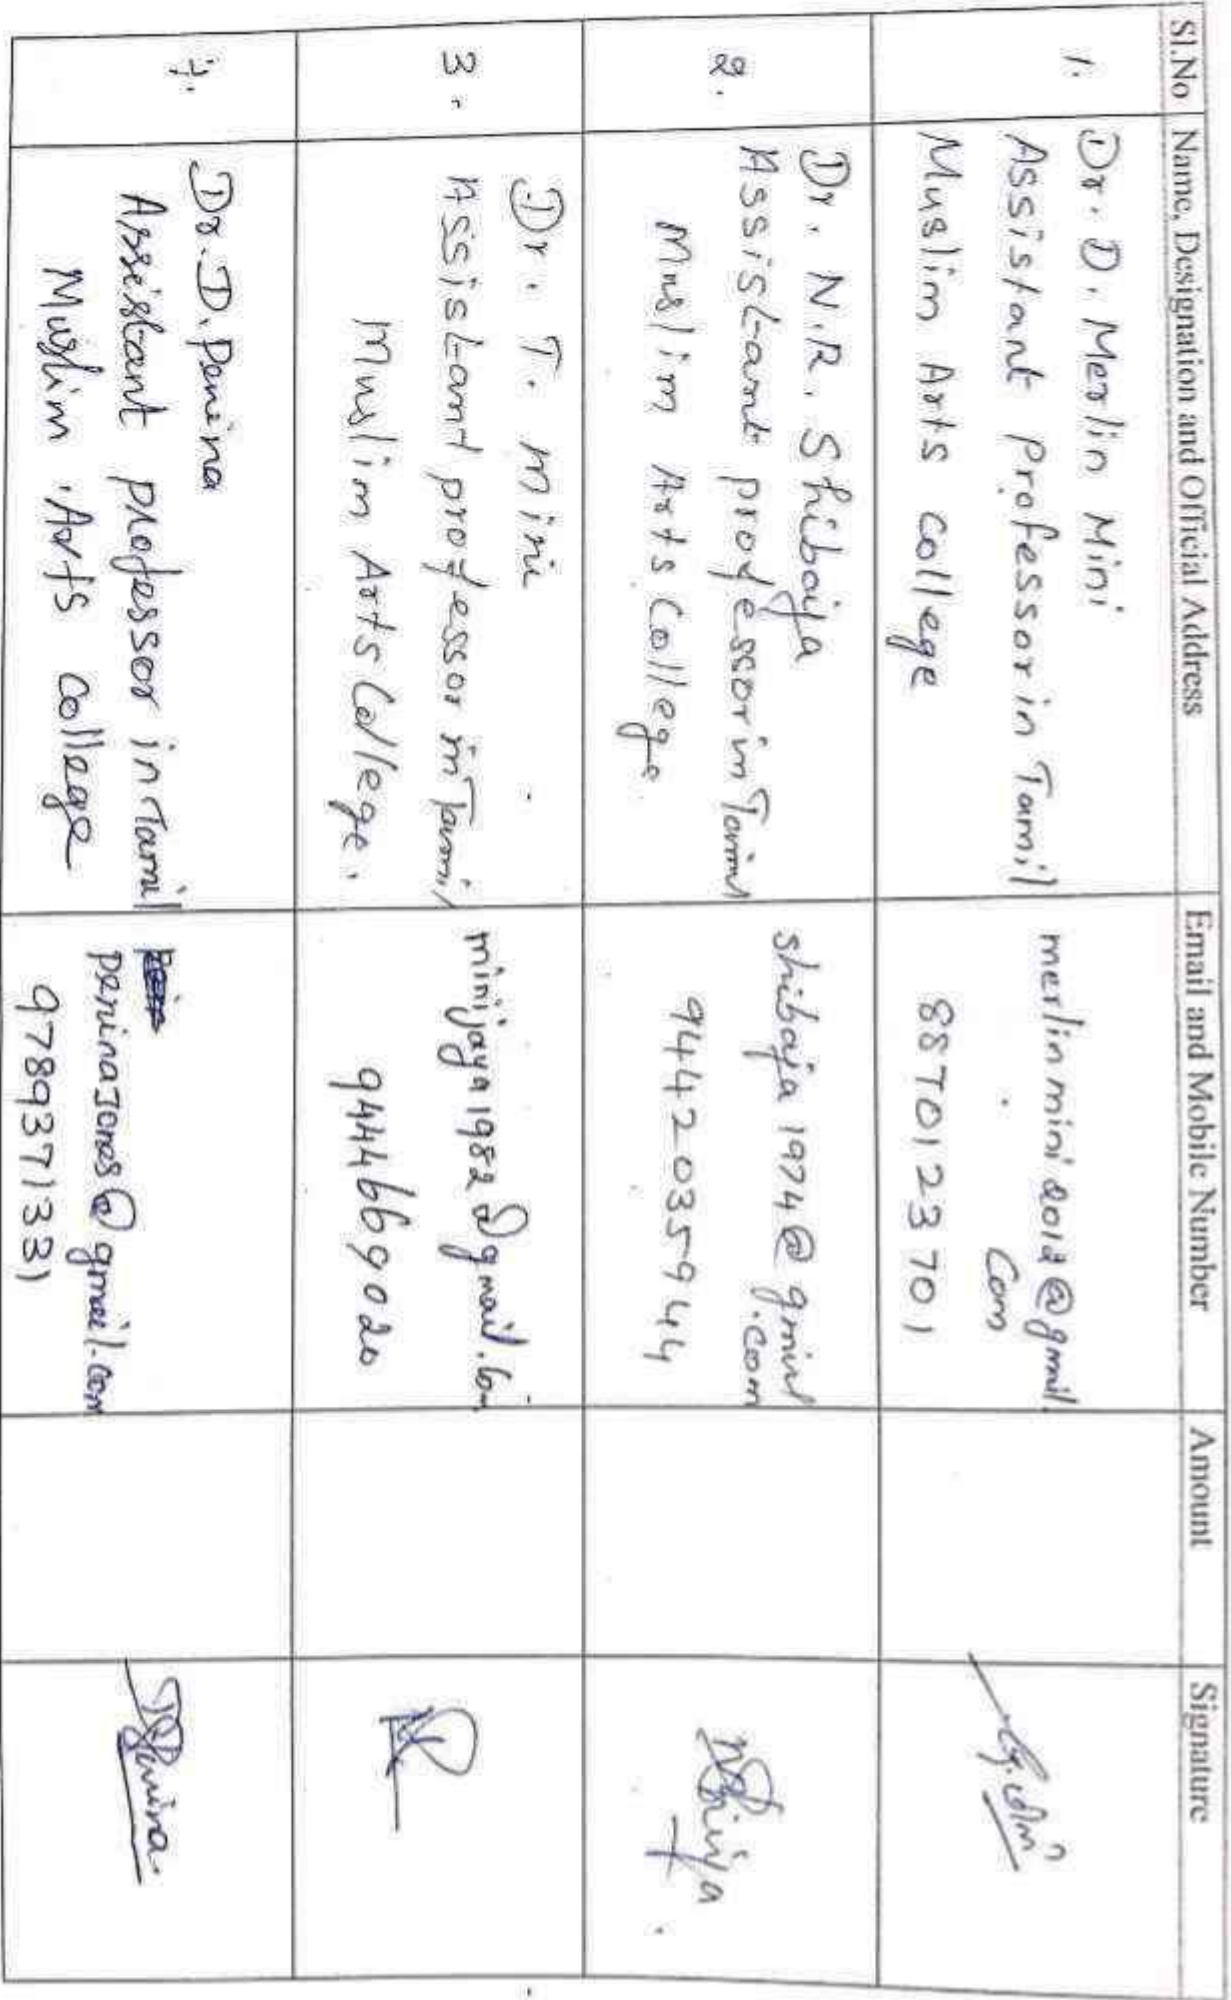 Sl.No Name, Designation and Official Address Email and Mobile Number Amount Signature
1. Dr. D. Merlin Mini
Assistant Professor in Tamil
Muslim Arts College
merlin mini 2012@gmail.
com
8870123701
2. Dr. N.R. Shibaija
Assistant professor in Tamil
Muslim Arts College
shibaija 1974@gmail
.com
9442035944
3. Dr. T. mini
Assistant professor in Tamil
Muslim Arts College.
minijaya1982@gmail.com
9444669020
4. Dr. D. Penina
Assistant professor in Tamil
Muslim Arts College
peninajones@gmail.com
9789371331
D Penina.